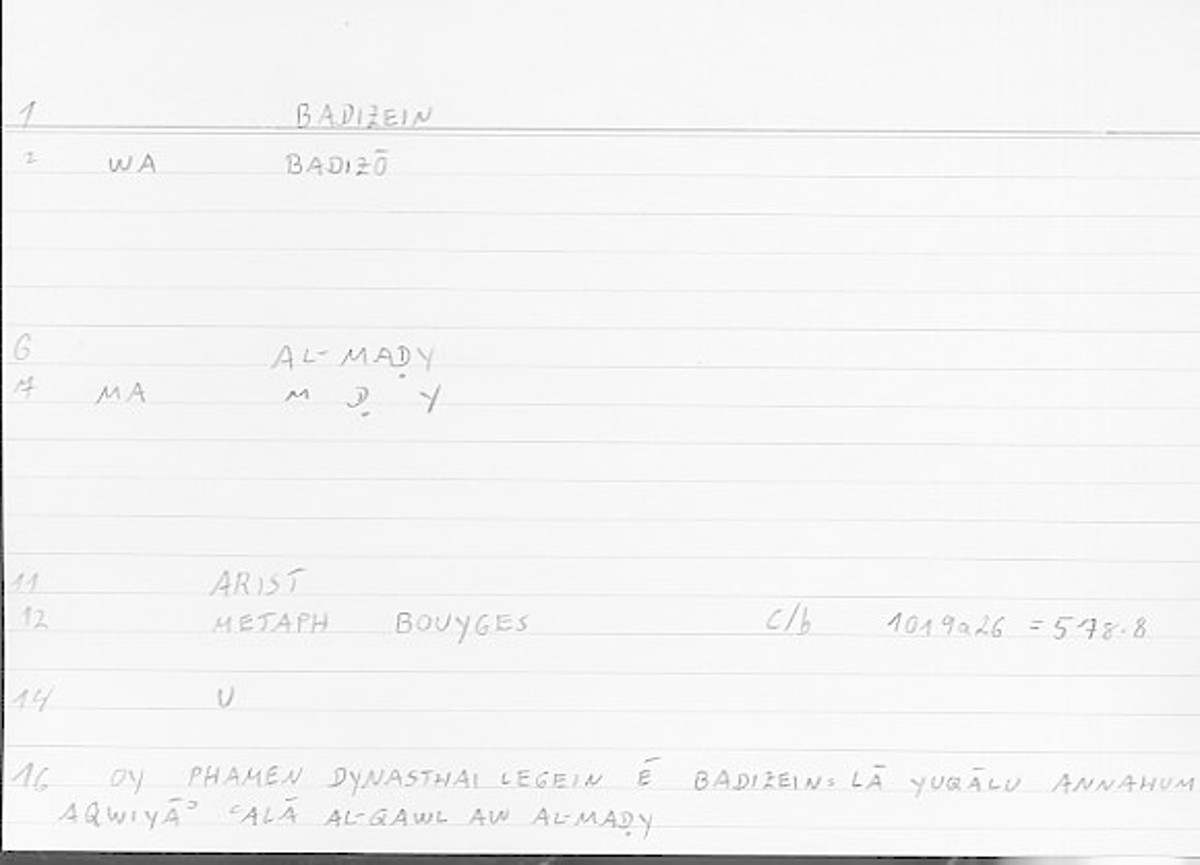 1 BADIZEIN
2 WA BADIZŌ
6 AL-MAḌY
7 MA M Ḍ Y
11 ARIST
12 METAPH BOUYGES C/b 1019a26 = 578.8
14 U
16 OY PHAMEN DYNASTHAI LEGEIN Ē BADIZEIN: LĀ YUQĀLU ANNAHUM
AQWIYĀʾ ʿALĀ AL-QAWL AW AL-MAḌY